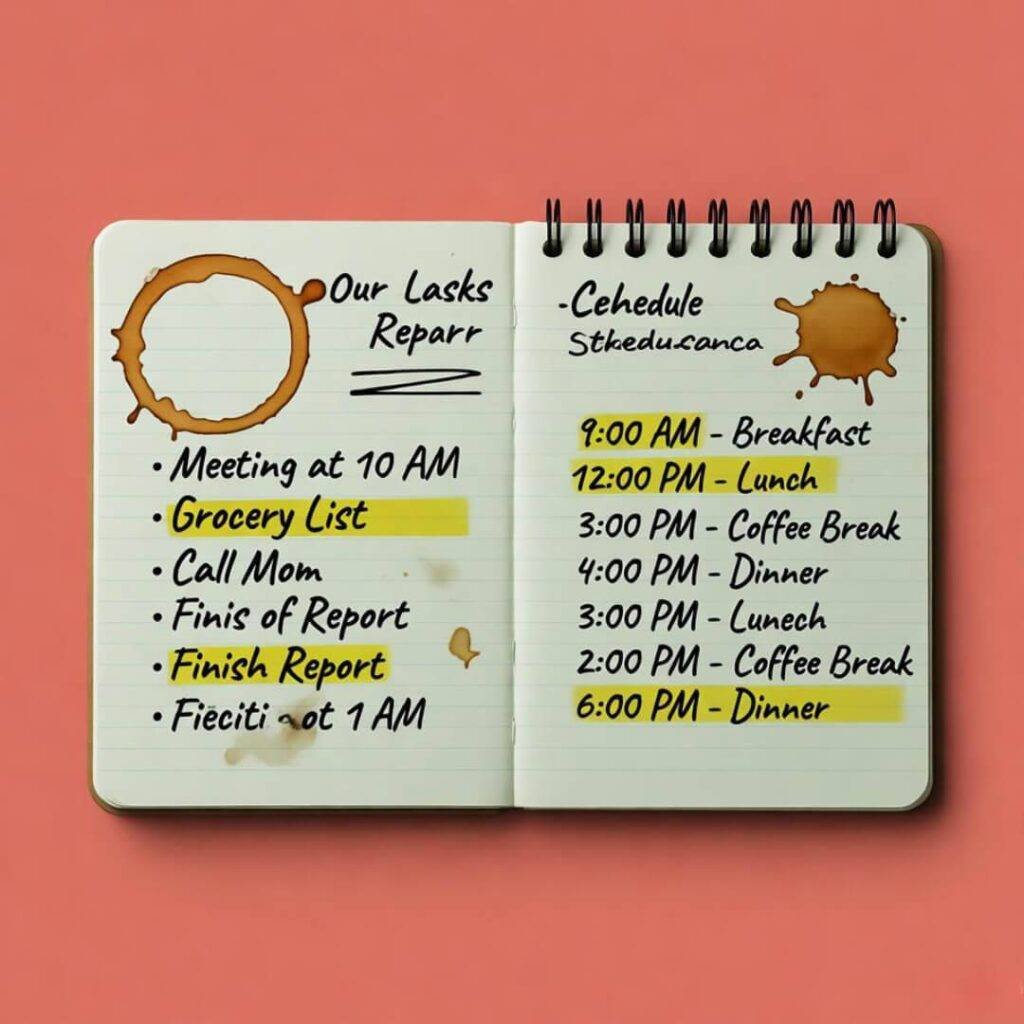 Our Lasks
Reparr
• Meeting at 10 AM
• Grocery List
• Call Mom
• Finis of Report
• Finish Report
• Fiëciti ot 1 AM
-Cehedule
Stkedusanca
9:00 AM - Breakfast
12:00 PM - Lunch
3:00 PM - Coffee Break
4:00 PM - Dinner
3:00 PM - Lunech
2:00 PM - Coffee Break
6:00 PM - Dinner